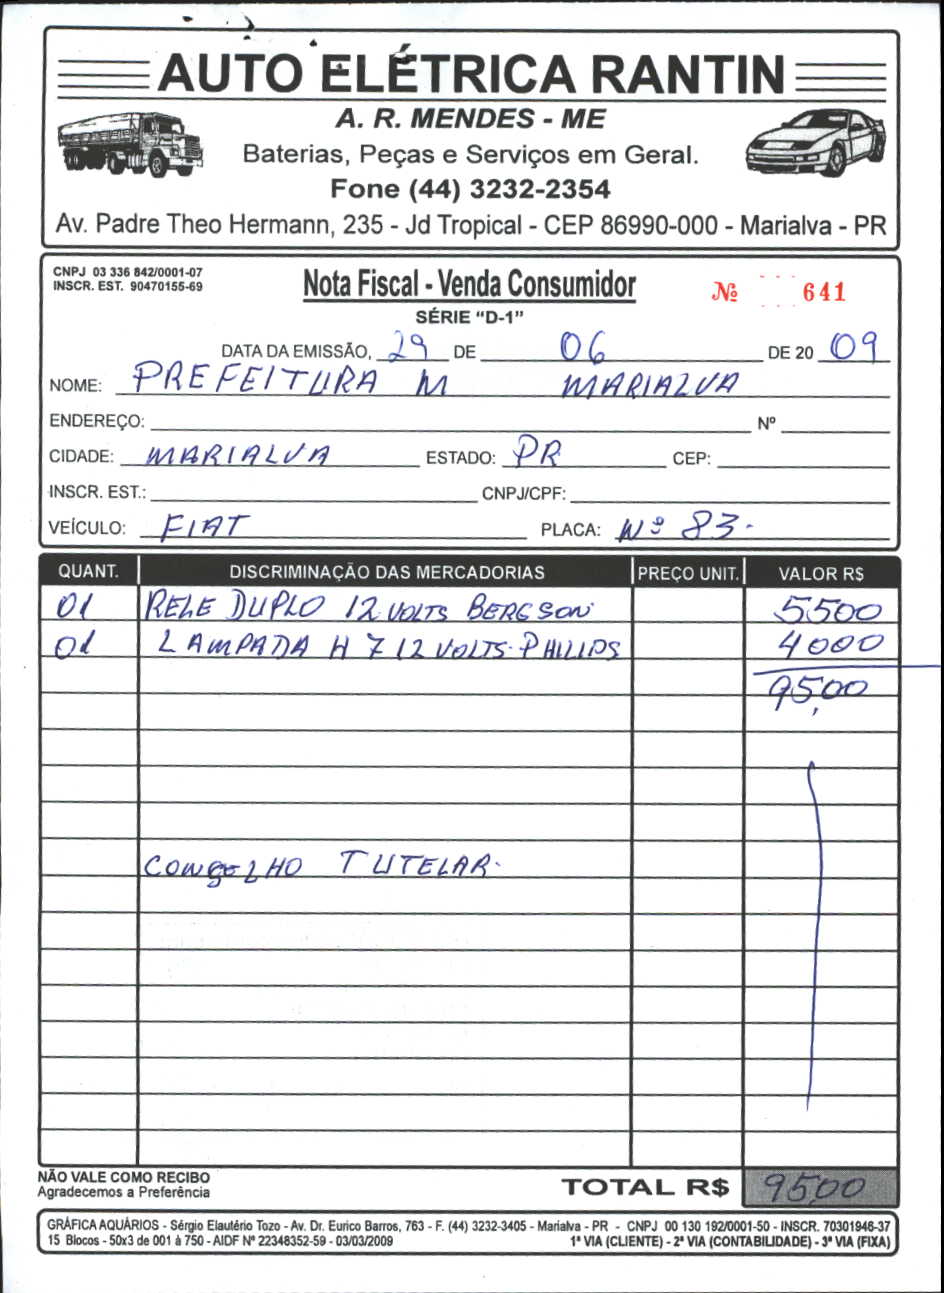 AUTO ELÉTRICA RANTIN
A. R. MENDES - ME
Baterias, Peças e Serviços em Geral.
Fone (44) 3232-2354
Av. Padre Theo Hermann, 235 - Jd Tropical - CEP 86990-000 - Marialva - PR
CNPJ 03 336 842/0001-07
INSCR. EST. 90470155-69
Nota Fiscal - Venda Consumidor
SÉRIE "D-1"
Nº 641
DATA DA EMISSÃO, 29 DE 06 DE 20 09
NOME: PREFEITURA M MARIALVA
ENDEREÇO: Nº
CIDADE: MARIALVA ESTADO: PR CEP:
INSCR. EST.: CNPJ/CPF:
VEÍCULO: FIAT PLACA: Nº 83.
QUANT. DISCRIMINAÇÃO DAS MERCADORIAS PREÇO UNIT. VALOR R$
01 RELE DUPLO 12 VOLTS BERGSON 5500
01 LAMPADA H 7 12 VOLTS. PHILIPS 4000
95,00
CONSELHO TUTELAR.
NÃO VALE COMO RECIBO
Agradecemos a Preferência
TOTAL R$ 9500
GRÁFICA AQUÁRIOS - Sérgio Elautério Tozo - Av. Dr. Eurico Barros, 763 - F. (44) 3232-3405 - Marialva - PR - CNPJ 00 130 192/0001-50 - INSCR. 70301946-37
15 Blocos - 50x3 de 001 à 750 - AIDF Nº 22348352-59 - 03/03/2009 1ª VIA (CLIENTE) - 2ª VIA (CONTABILIDADE) - 3ª VIA (FIXA)